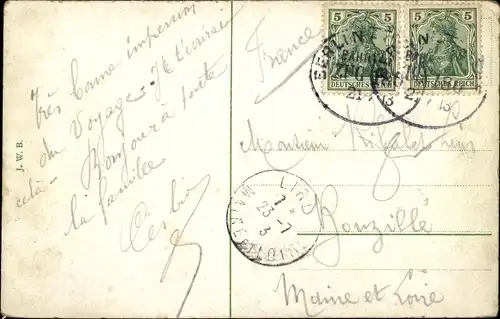 Très bonne impression
du Voyage. Je t'écrirai
cela. Bonjour à toute
la famille
J. W. B.
France
5 5
5 5
DEUTSCHES REICH
DEUTSCHES REICH
BERLIN
21 7 13
Monsieur
Bouzillé
Maine et Loire
LIRÉ
7 *
23 -7
MAINE ET LOIRE